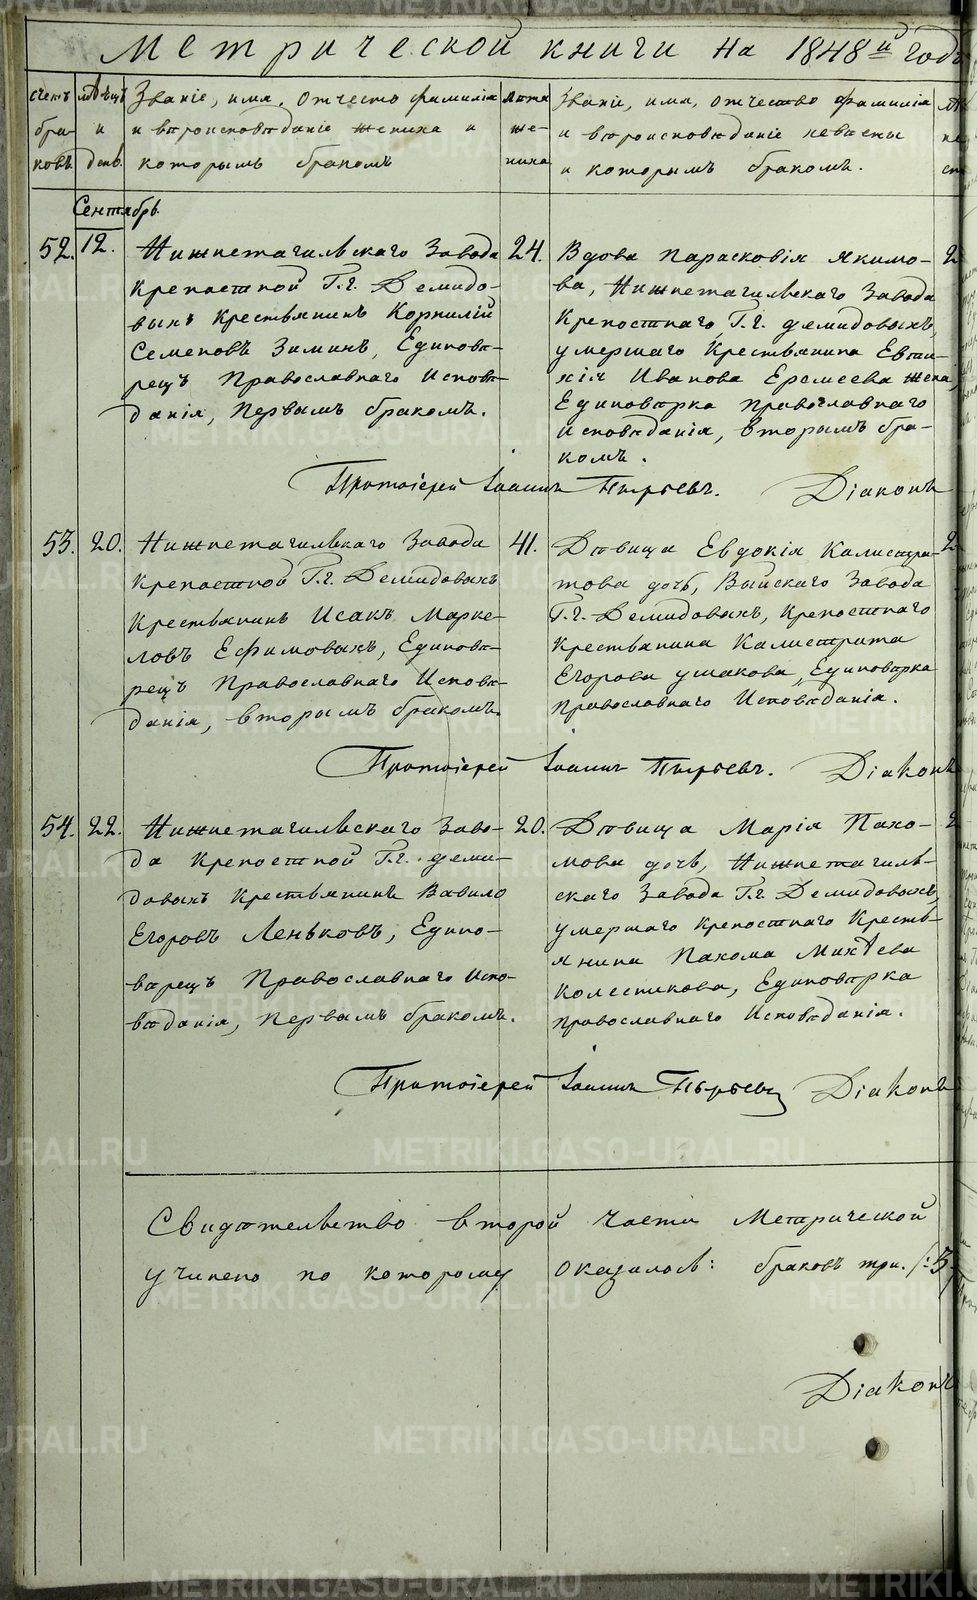 Метрической книги на 1848й годъ
счетъ браковъ.
мѣсяцъ и день.
Званіе, имя, отчество фамилія
и вѣроисповѣданіе жениха и
которымъ бракомъ
лѣта жениха
Званіе, имя, отчество фамилія
и вѣроисповѣданіе невѣсты
и которымъ бракомъ.
Сентябрь.
52. 12.
Нижнетагильскаго Завода
крепостной Г.г. Демидо-
выхъ крестьянинъ Корнилій
Семеновъ Зиминъ, Единовѣ-
рецъ Православнаго Исповѣ-
данія, первымъ бракомъ.
24.
Вдова Парасковія Якимо-
ва, Нижнетагильскаго Завода
Крепостнаго Г.г. Демидовыхъ,
умершаго Крестьянина Евти-
хія Иванова Еремеева жена,
Единовѣрка православнаго
исповѣданія, вторымъ бра-
комъ.
2
Протоіерей Іоаннъ Пырьевъ. Діаконъ
53. 20.
Нижнетагильскаго Завода
крепостной Г.г. Демидовыхъ
Крестьянинъ Исакъ Марке-
ловъ Ефимовыхъ, Единовѣ-
рецъ Православнаго Исповѣ-
данія, вторымъ бракомъ.
41.
Дѣвица Евдокія Калистра-
това дочь, Выйскаго Завода
Г.г. Демидовыхъ, крепостнаго
крестьянина Калистрата
Егорова ушакова, Единовѣрка
православнаго Исповѣданія.
2
Протоіерей Іоаннъ Пырьевъ. Діаконъ
54. 22.
Нижнетагильскаго Заво-
да крепостной Г.г. деми-
довыхъ крестьянинъ Вавило
Егоровъ Леньковъ, Едино-
варецъ Православнаго Испо-
вѣданія, первымъ бракомъ.
20.
Дѣвица Марія Пахо-
мова дочь, Нижнетагиль-
скаго Завода Г.г. Демидовыхъ,
умершаго крепостнаго Кресть-
янина Пахома Михѣева
Колесникова, Единовѣрка
православнаго Исповѣданія.
2
Протоіерей Іоаннъ Пырьевъ Діаконъ
Свидѣтельство второй части Метрической
учинено по которому оказалось: браковъ три. /:3.
Діаконъ
METRIKI.GASO-URAL.RU